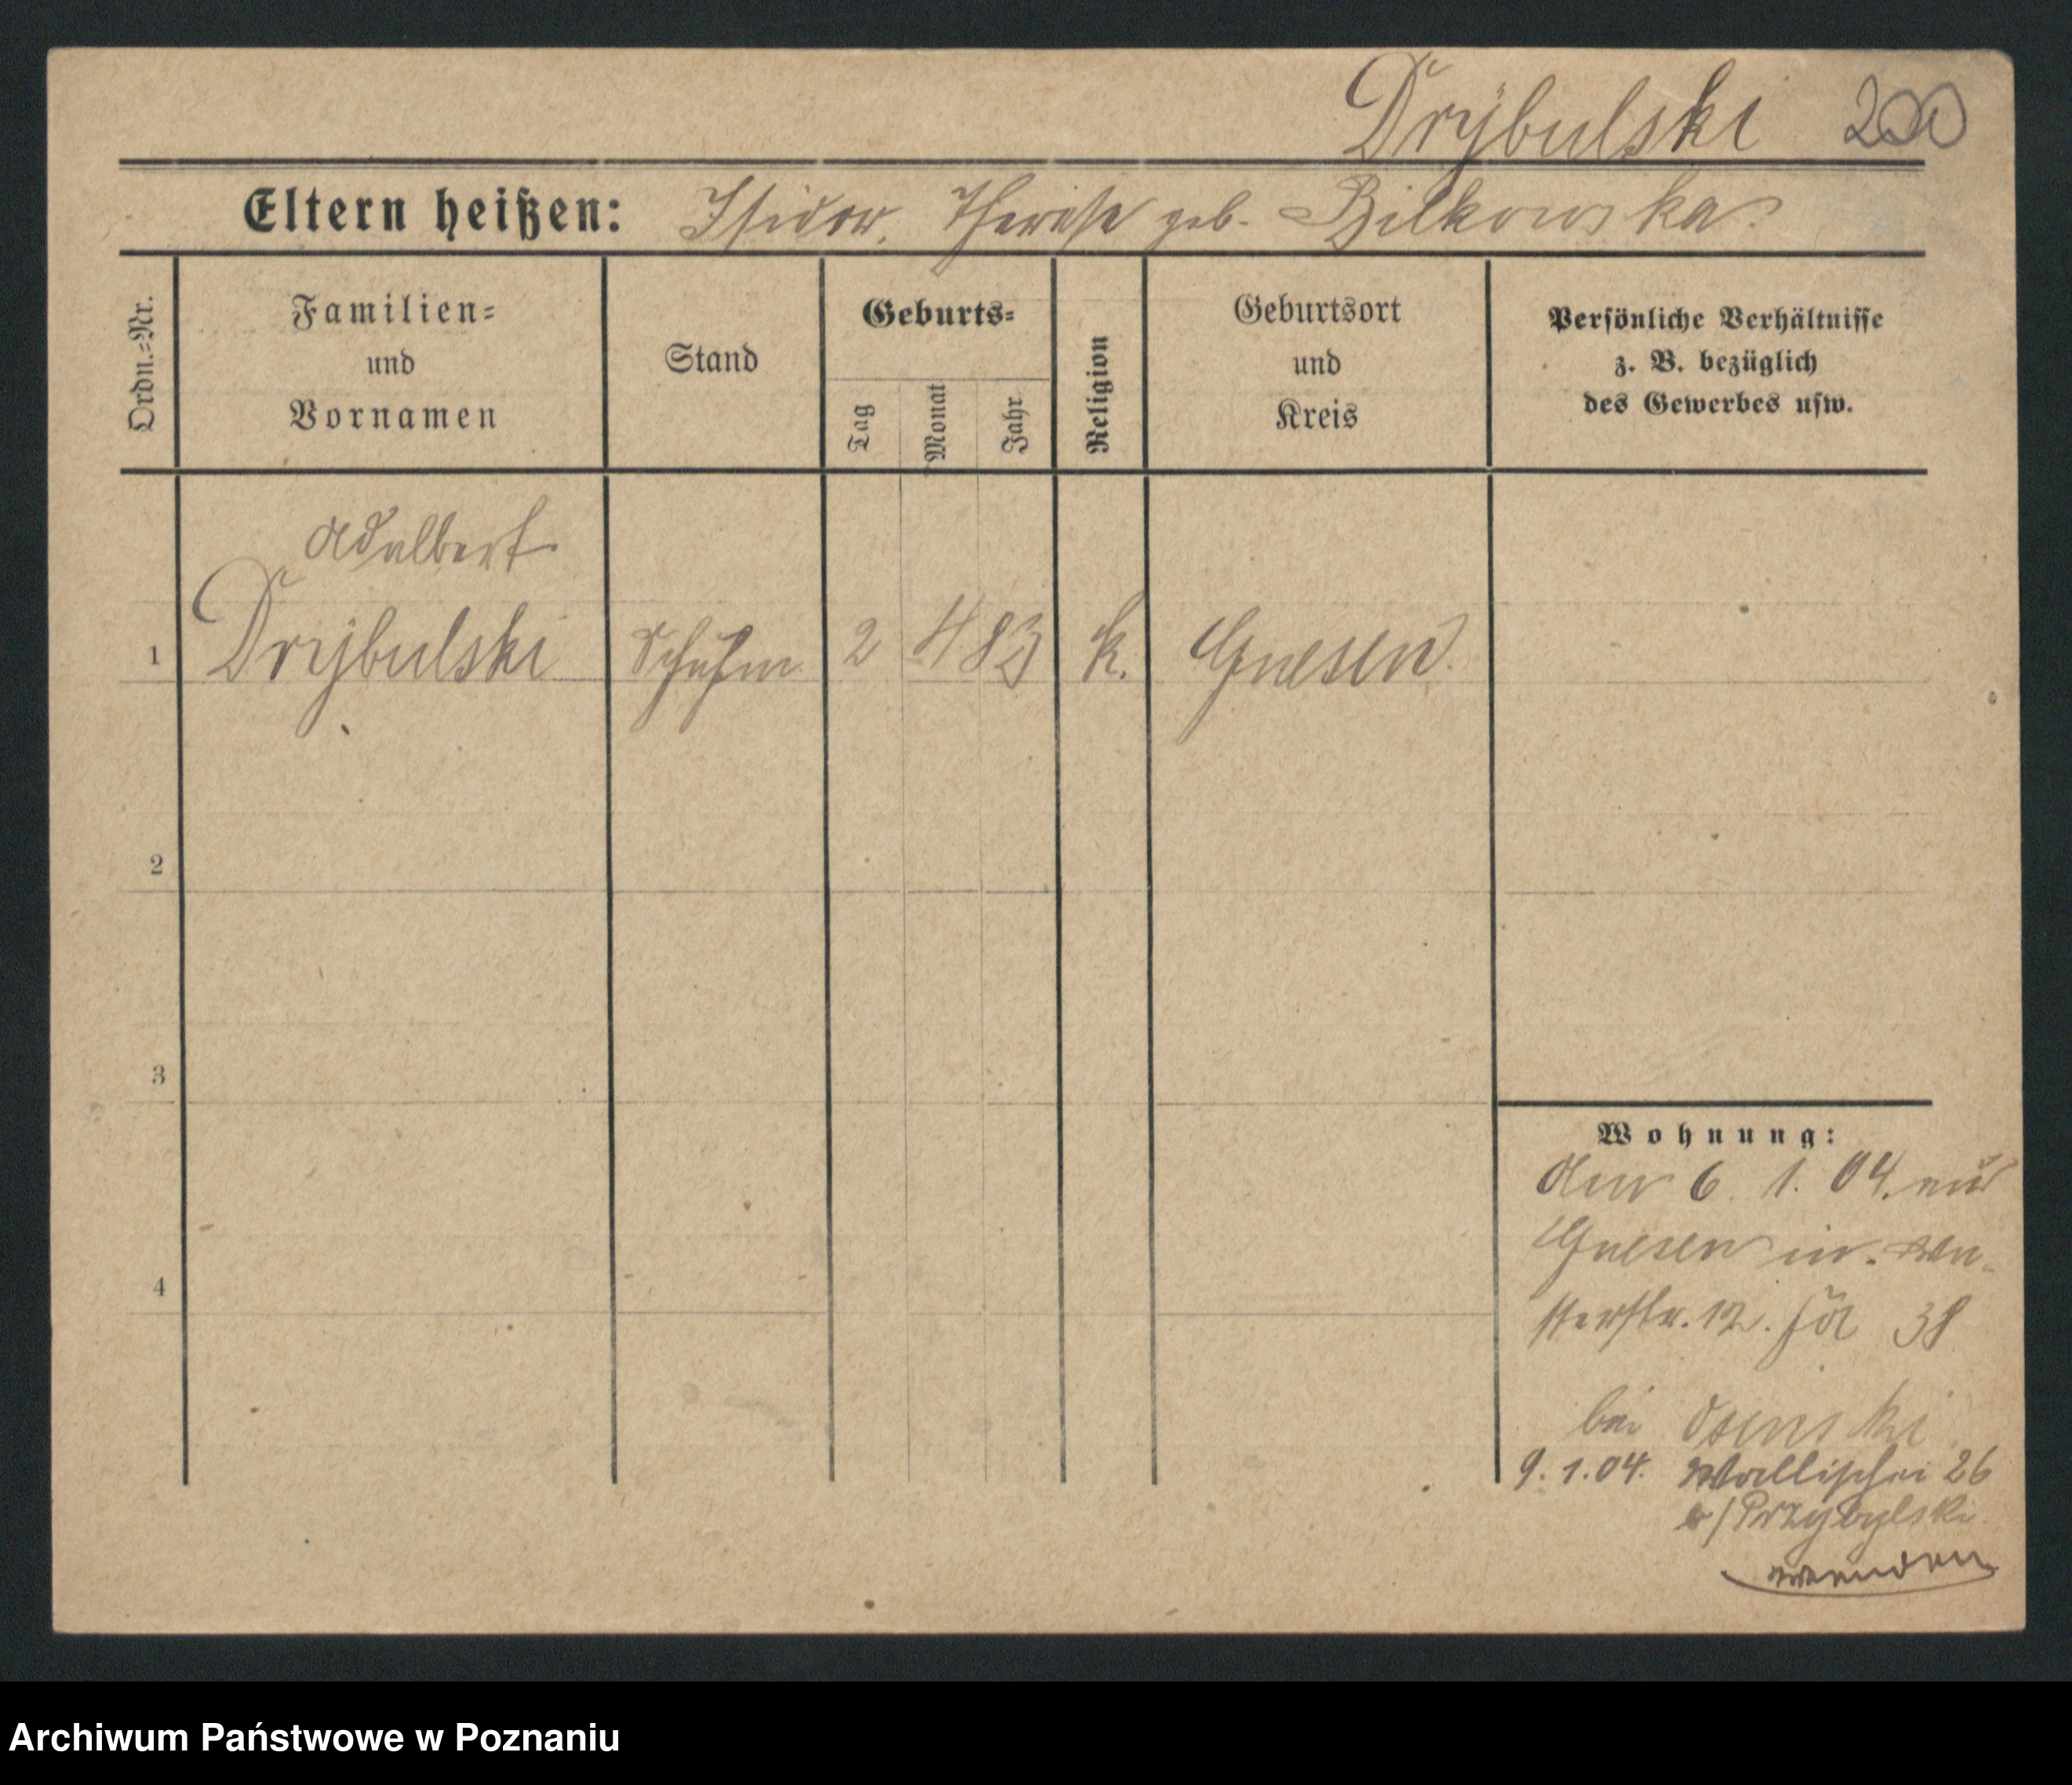 Drÿbulski 200
Eltern heißen: Isidor, Therese geb. Bilkowska.
Ordn.=Nr.
Familien=
und
Vornamen
Stand
Geburts=
Tag
Monat
Jahr
Religion
Geburtsort
und
Kreis
Persönliche Verhältnisse
z. B. bezüglich
des Gewerbes usw.
Adalbert
1 Drÿbulski Schuhm 2 4 83 k. Gnesen.
2
3
4
Wohnung:
den 6. 1. 04. aus
Gnesen in
12. 38
bei
9. 1. 04. Wallischei 26
b/Przybylski.
wenden
Archiwum Państwowe w Poznaniu